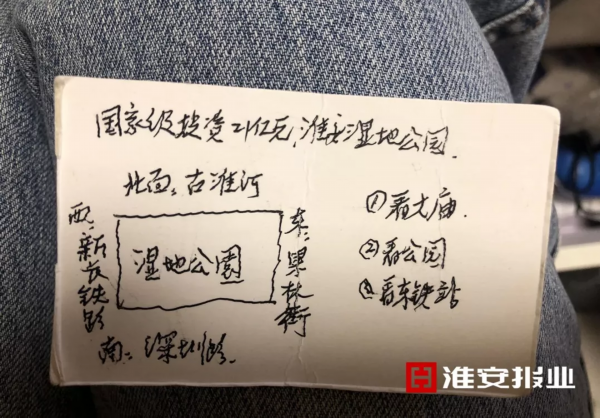 国家级投资21亿元,淮安湿地公园.
北面:古淮河
西:新长铁路
湿地公園
东:果林街
南:深圳路.
①看大庙.
②看公园
③看东铁站
淮安报业